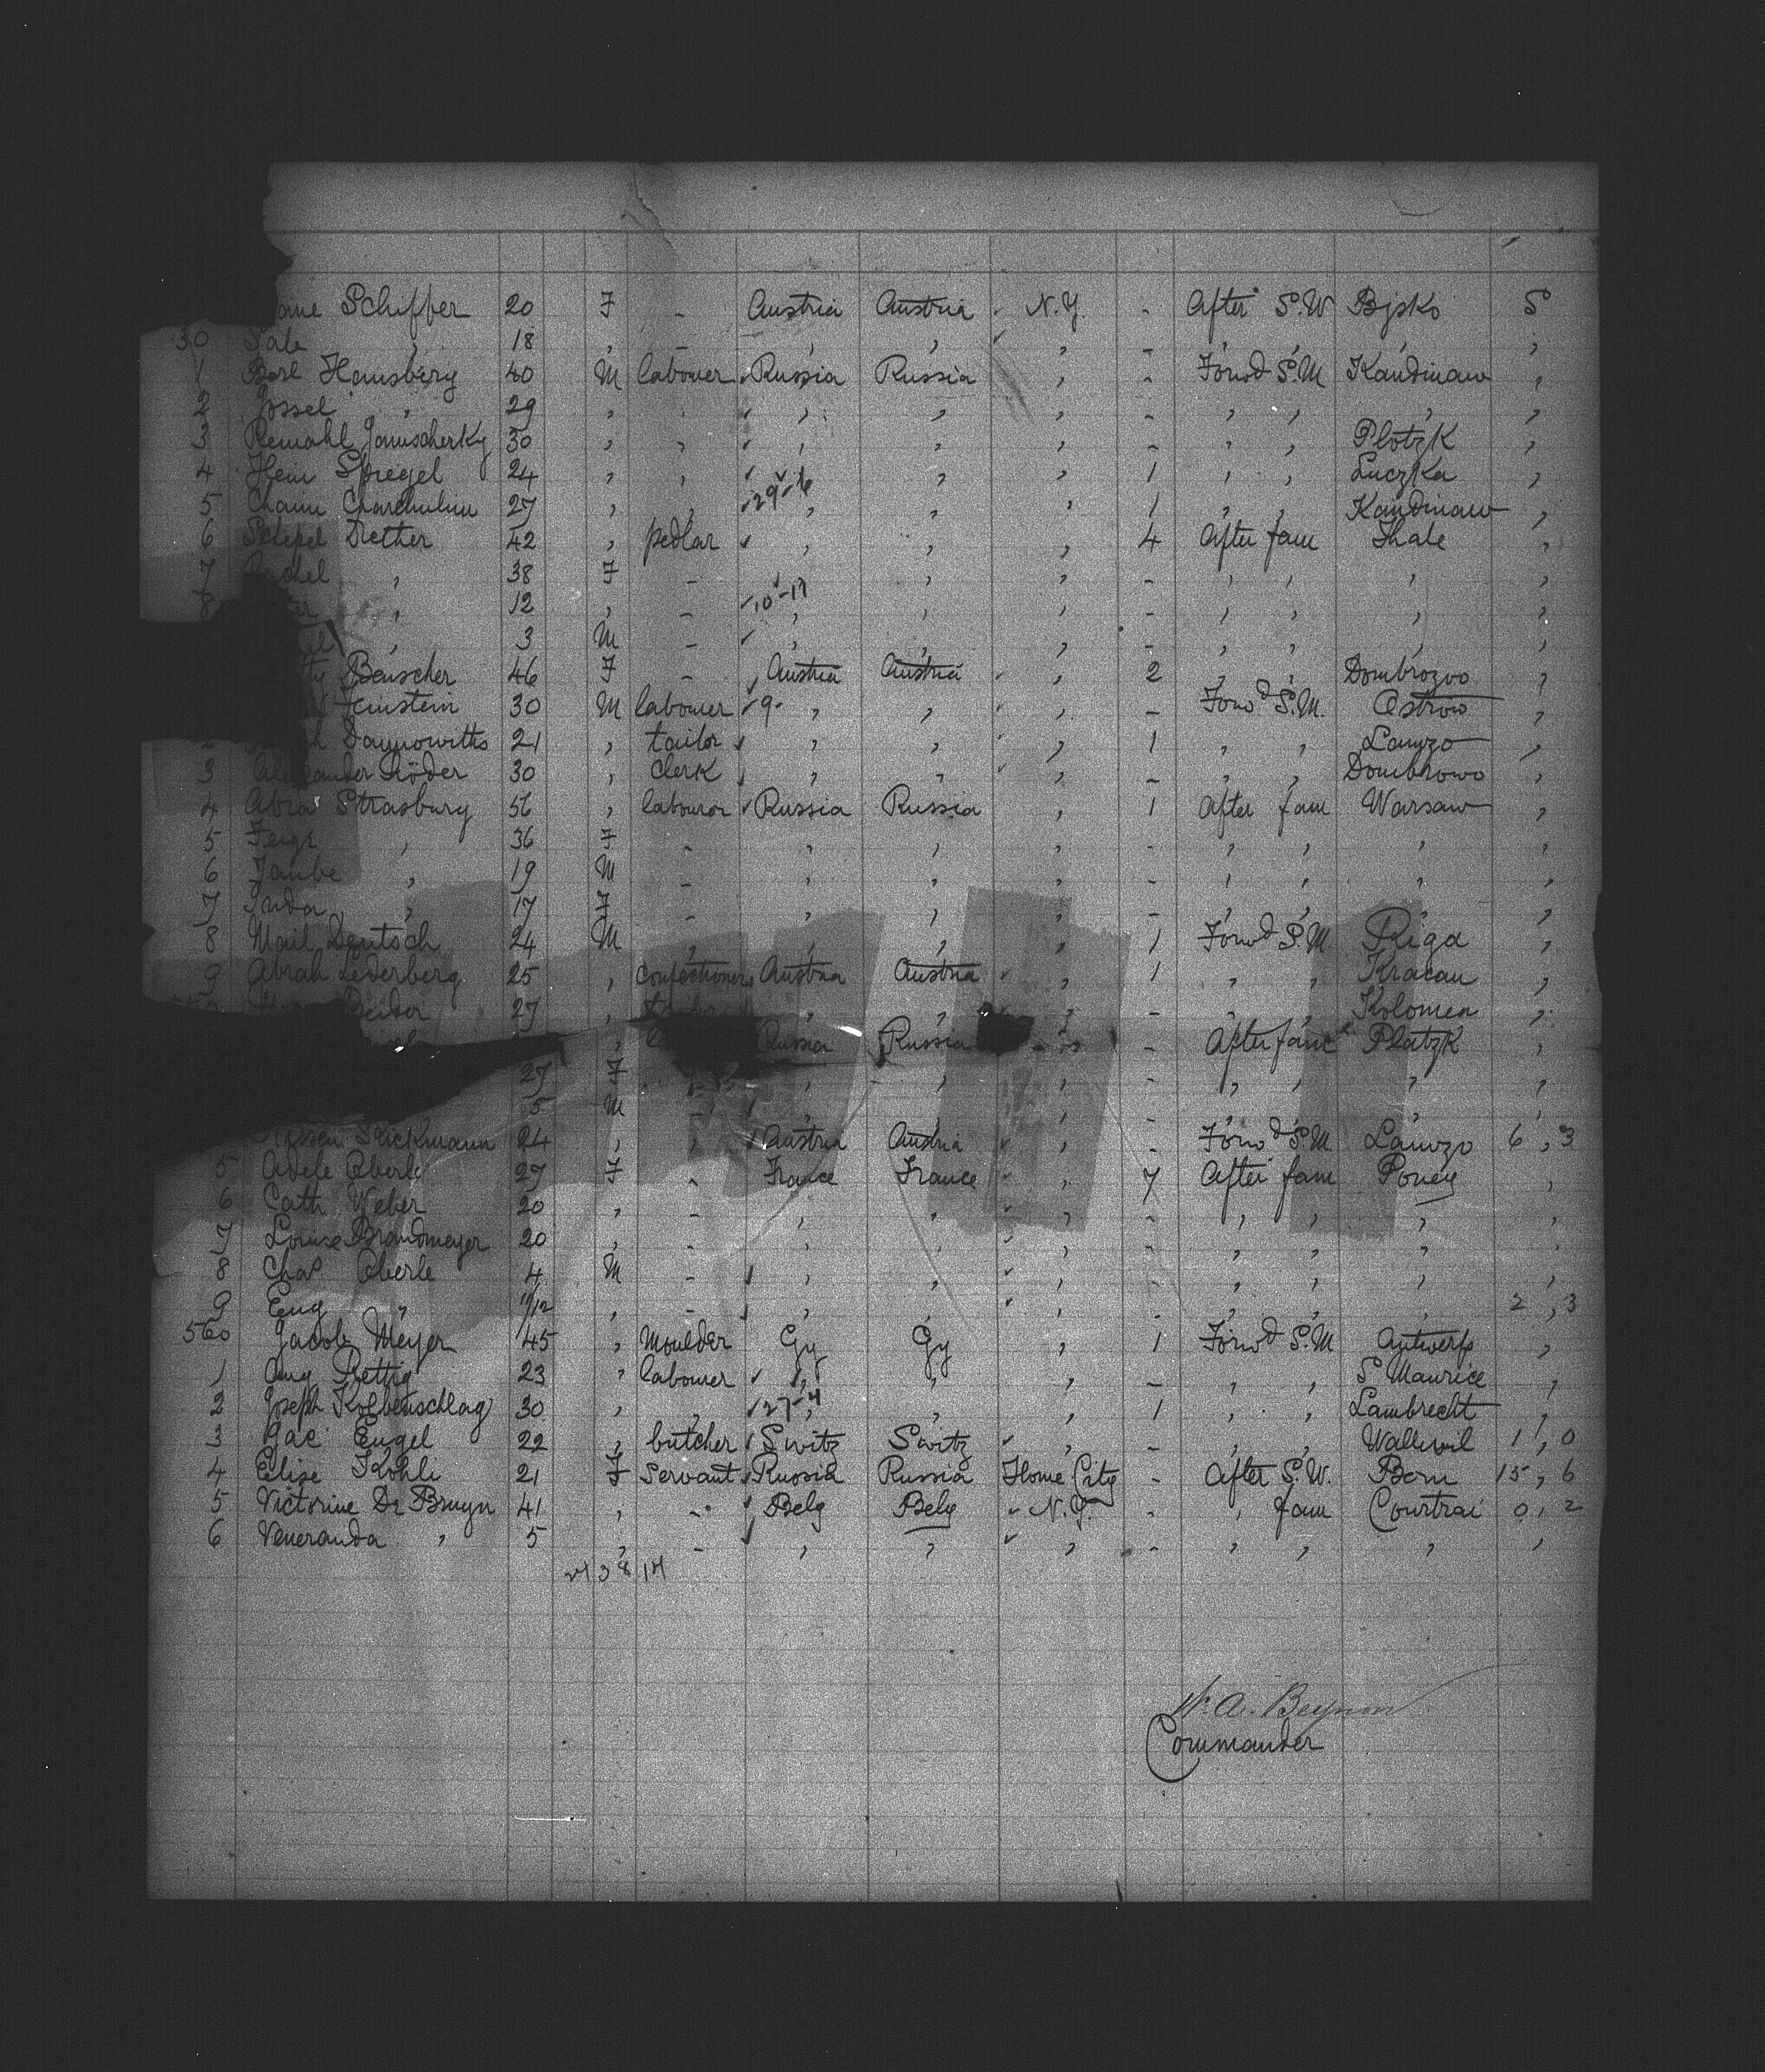 Schiffer 20 F - Austria Austria N.Y. - After S.W Bjsko S
30 Sale , 18 , - , , , - , , , ,
1 Berl Hamsberg 40 M labourer Russia Russia , - Forwd S.M Kandinaw ,
2 Jossel , 29 , , , , , - , , , ,
3 Remahl Januscherky 30 , , , , , - , , Plotzk ,
4 Hein Spregel 24 , , , , 1 , , Luczka ,
5 Chaim 27 , , 29-6 , , , 1 , , Kandinaw ,
6 Dether 42 , pedlar , , , 4 After fam Thale ,
7 , 38 F - , , , - , , , ,
8 , 12 , - 10-17 , , , - , , , ,
, 3 M - , , , - , , , ,
Beuscher 46 F - Austria Austria , 2 , , Dombrozvo ,
Feinstein 30 M labourer 9- , , , - Forwd S.M. Ostrow ,
21 , tailor , , , 1 , , Lanvzo ,
3 Alexander Röder 30 , Clerk , , , - , , Dombrowo ,
4 Abra Strasburg 56 , labouror Russia Russia , 1 After fam Warsaw ,
5 Feige , 36 F - , , , - , , , ,
6 Taube , 19 M - , , , - , , , ,
7 Juda , 17 F - , , , - , , , ,
8 Mail Deutsch 24 M , , , , 1 Forwd S.M. Riga ,
9 Abrah Lederberg 25 , Confectioner Austria Austria , 1 , , Kracau ,
27 , , , , - , , Kolomea ,
, Russia Russia - After fam Platzk ,
27 F - , , , - , , , ,
5 M - , , , - , , , ,
Rickmann 24 , , Austria Austria , - Forwd S.M. Lanvzo 6 , 3
5 Adele Oberle 27 F - France France , 7 After fam Poney ,
6 Cath Weber 20 , - , , , - , , , ,
7 Louise Brandmeyer 20 , - , , , - , , , ,
8 Chas Oberle 4 M - , , , - , , , ,
9 Eug " 11/12 , - , , , - , , , 2 , 3
560 Jacob Meyer 45 , Moulder Gy Gy , 1 Forwd S.M Antwerp ,
1 Aug Rettig 23 , labourer , , , - , , S Maurice ,
2 Joseph Kolbenschlag 30 , , 27-4 , , , 1 , , Lambrecht ,
3 Jac Engel 22 , butcher Switz Switz , - , , Wallwil 1 , 0
4 Elise Kohli 21 F Servant Russia Russia Home City - After S.W. Bern 15 , 6
5 Victorine De Bruyn 41 , - Belg Belg N.Y. - , fam Courtrai 0 , 2
6 Veneranda , 5 , - , , , - , , , ,
Commander